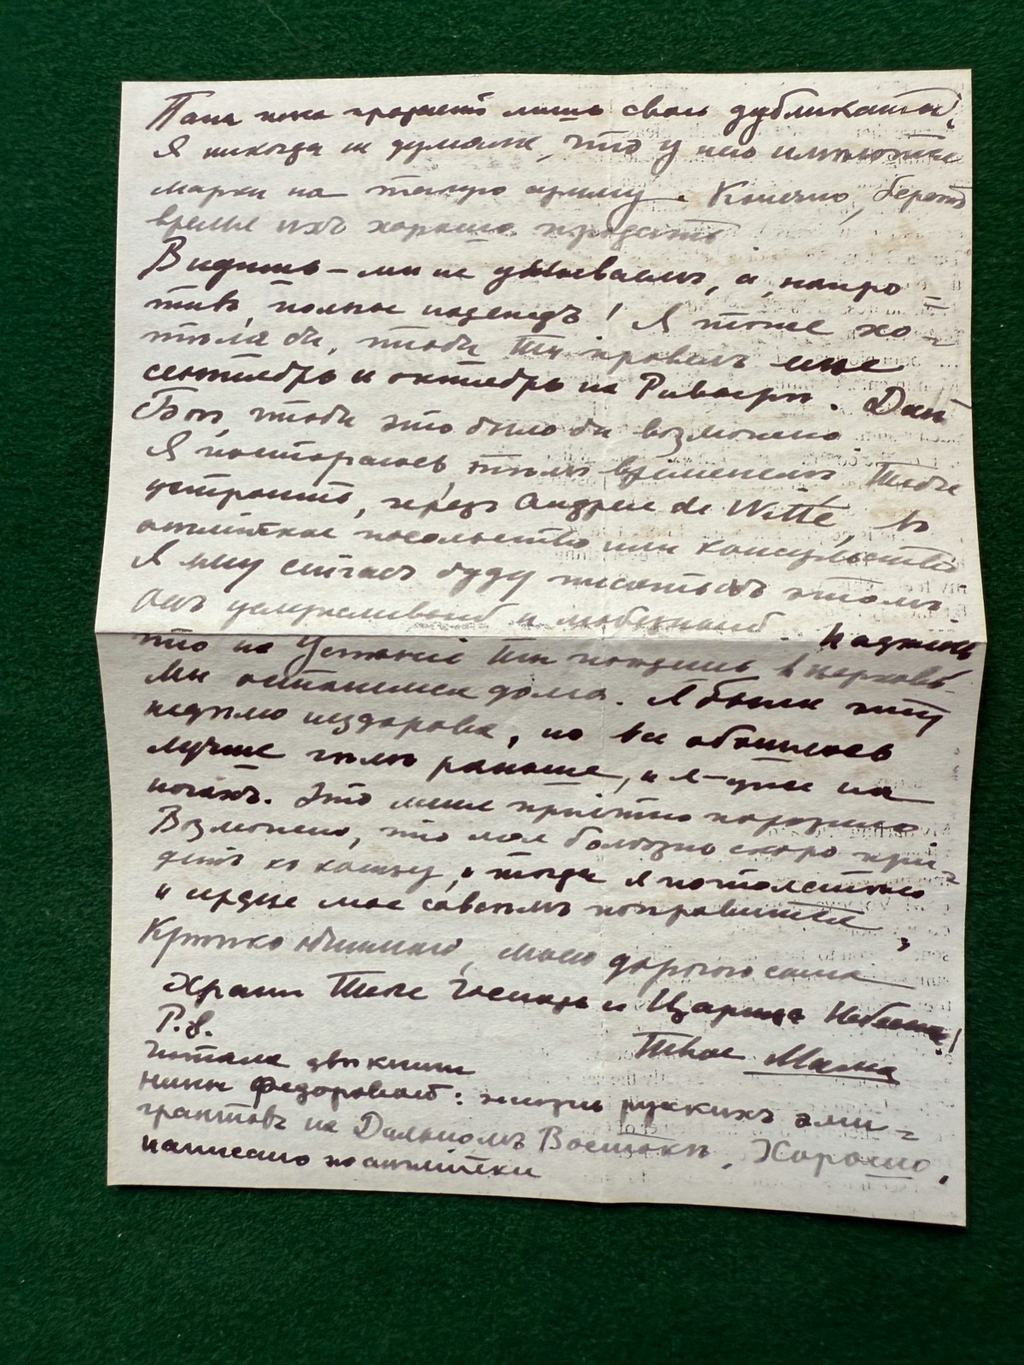 Папа пока продаетъ лишь свои дубликаты.
Я никогда не думала, что у него имѣются
марки на такую сумму. Конечно, беретъ
время ихъ хорошо продать
Видишь – мы не унываемъ, а, напро=
тивъ, полны надеждъ! Я тоже хо=
тѣла бы, чтобы Ты провелъ еще
сентябрь и октябрь на Ривьерѣ. Дай
Богъ, чтобы это было бы возможно
Я постараюсь, тѣмъ временемъ Тебя
устроить, черезъ Андрея de Witte, въ
англійское посольство или консульство
Я ему сейчасъ буду писать объ этомъ
Онъ услужливый и любезный. Надѣюсь
что на Успеніе Ты пойдешь въ церковь.
Мы останемся дома. Я была эту
недѣлю нездорова, но все обошлось
лучше чѣмъ раньше, и я уже на
ногахъ. Это меня пріятно поразило
Возможно, что моя болѣзнь скоро прій=
детъ къ концу, и тогда я потолстѣю
и сердце мое совсѣмъ поправится,
Крѣпко обнимаю, моего дорогого сына
Храни Тебя Господь и Царица Небесная!
Твоя Мама
P.S.
Читала двѣ книги
Нины Федоровой: жизнь русскихъ эми=
грантовъ на Дальномъ Востокѣ. Хорошо,
написано по англійски